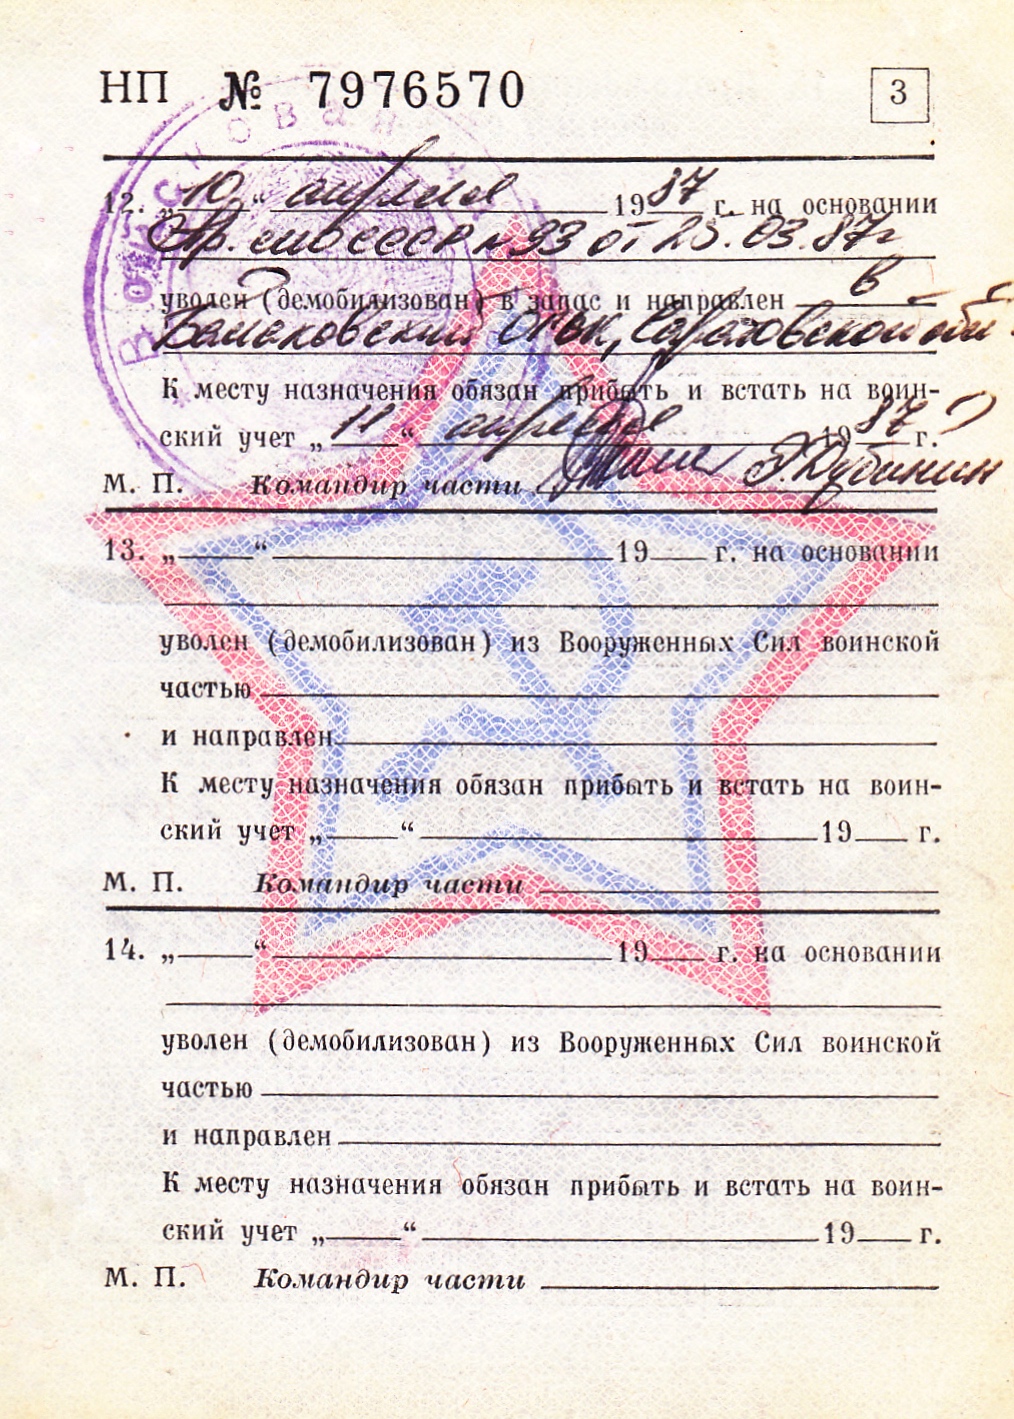 НП № 7976570 3
12. „10“ апреля 1987 г. на основании
Пр. МО СССР № 93 от 25.03.87г
уволен (демобилизован) в запас и направлен в
ОРВК, Саратовской обл.
К месту назначения обязан прибыть и встать на воин-
ский учет „11“ апреля 1987 г.
М. П. Командир части Г. Дубинин
13. „ “ 19 г. на основании
уволен (демобилизован) из Вооруженных Сил воинской
частью
и направлен
К месту назначения обязан прибыть и встать на воин-
ский учет „ “ 19 г.
М. П. Командир части
14. „ “ 19 г. на основании
уволен (демобилизован) из Вооруженных Сил воинской
частью
и направлен
К месту назначения обязан прибыть и встать на воин-
ский учет „ “ 19 г.
М. П. Командир части